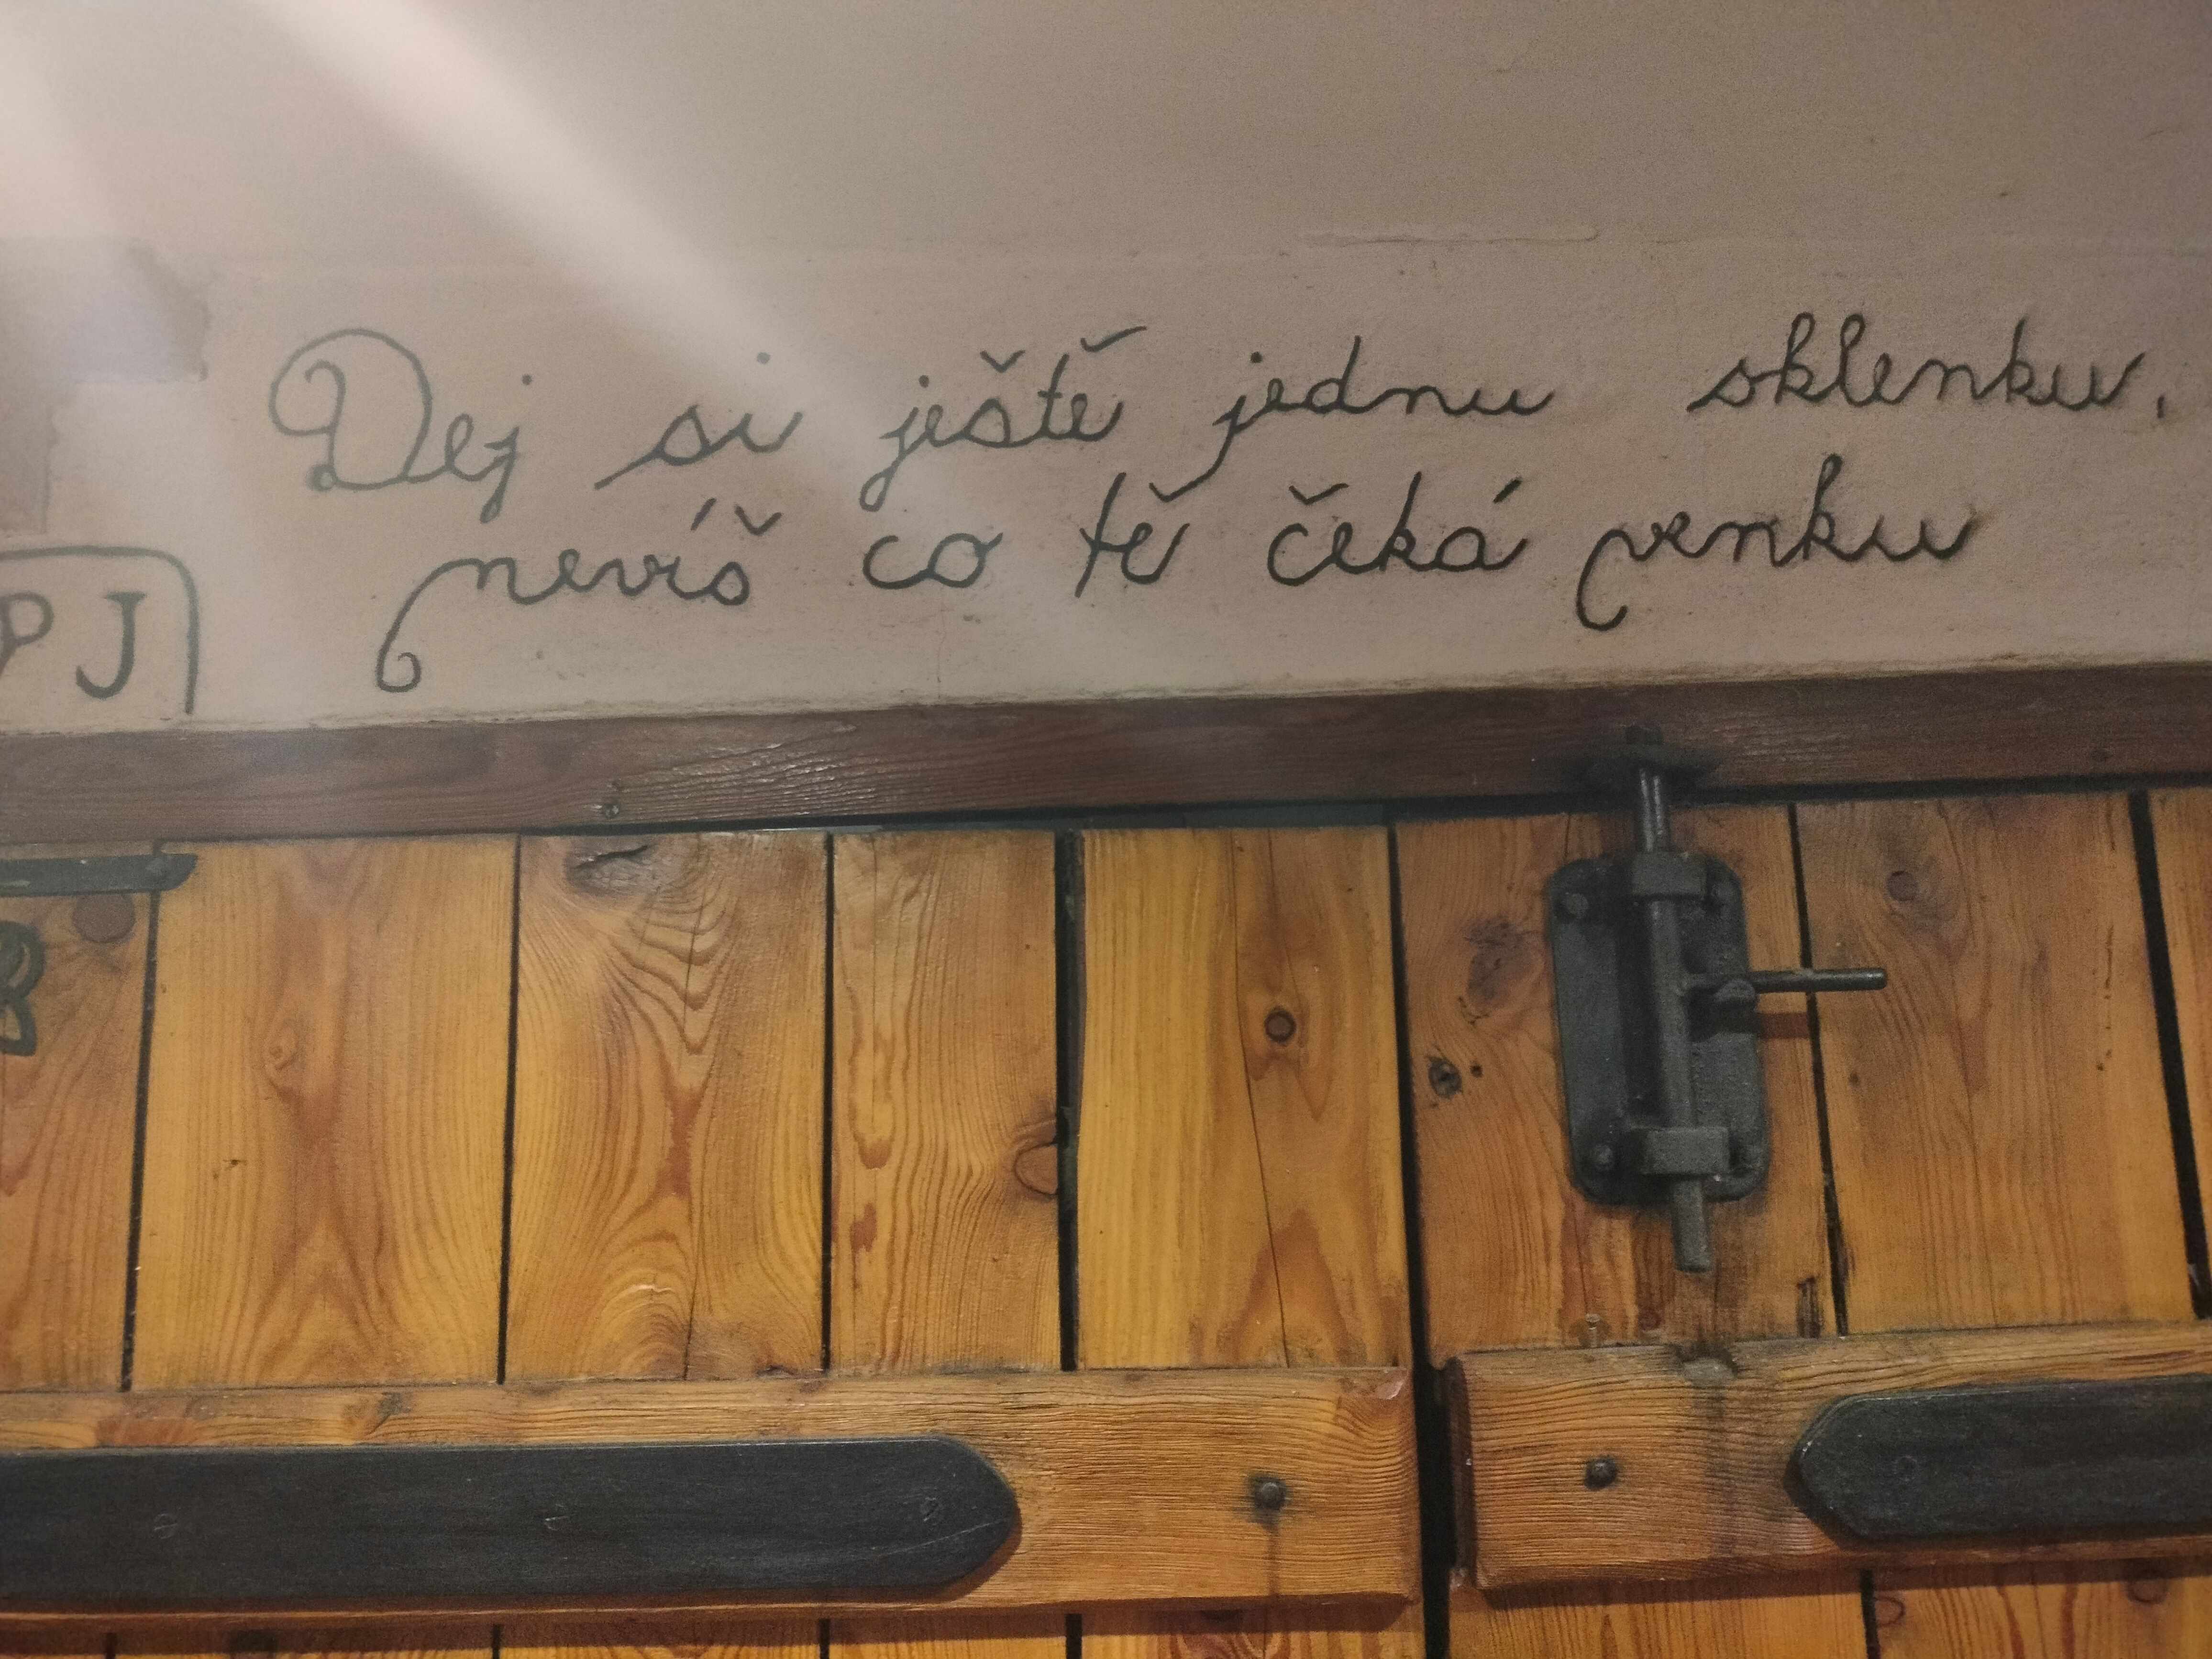 Dej si ještě jednu sklenku,
nevíš co tě čeká venku
PJ